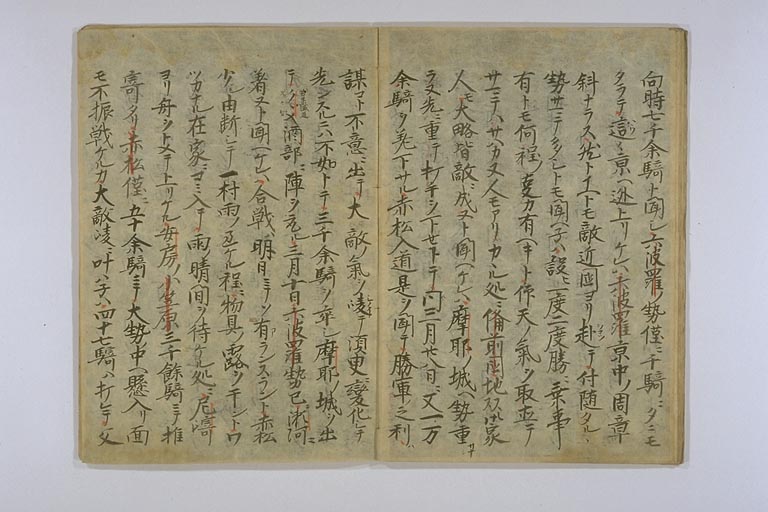 向時七千余騎ト聞シ六波羅ノ勢僅ニ千騎ニタニモ
タラテ這々京ヘ逃上リケレハ六波羅京中ノ周章
斜ナラス然トイエトモ敵近国ヨリ起テ付随タル
勢サニテ多シトモ聞ヘ子ハ設ヒ一度二度勝ニ乗事
有トモ何程ノ変カ有ヘキト作天ノ気ヲ取直テ
人モ大略皆敵ニ成ヌト聞ヘケレハ摩耶ノ城ヘ勢重
ラヌ先ニ重テ打手ヲ下セトテ同二月廿八日ニ又一万
余騎ヲ差下サル赤松入道是ヲ聞テ勝軍ノ利ハ
謀コト不意ニ出テ大敵ノ気ヲ凌テ須臾ニ変化シテ
先スルニハ不如トテ三千余騎ヲ率シ摩耶ノ城ヲ出
テ久々入酒部ニ陣ヲ三月十日六波羅勢已ニ瀬河ニ
着ヌト聞ヘケレハ合戦ハ明日ニソ有ランスラント赤松
少シ由断シテ一村雨ノ過ケル程物具ノ露ヲホントワ
ツカナル在家ニコミ入テ雨ノ晴間ヲ待ケル処ニ尼崎
ヨリ舟ヲトメテ上リケル安房ノ小笠原三千余騎ニテ推
寄タリ赤松僅ニ五十余騎ニテ大勢ノ中ヘ懸入リ面
モ不振戦ケルカ大敵凌ニ叶ハ子ハ四十七騎ハ打レテ父